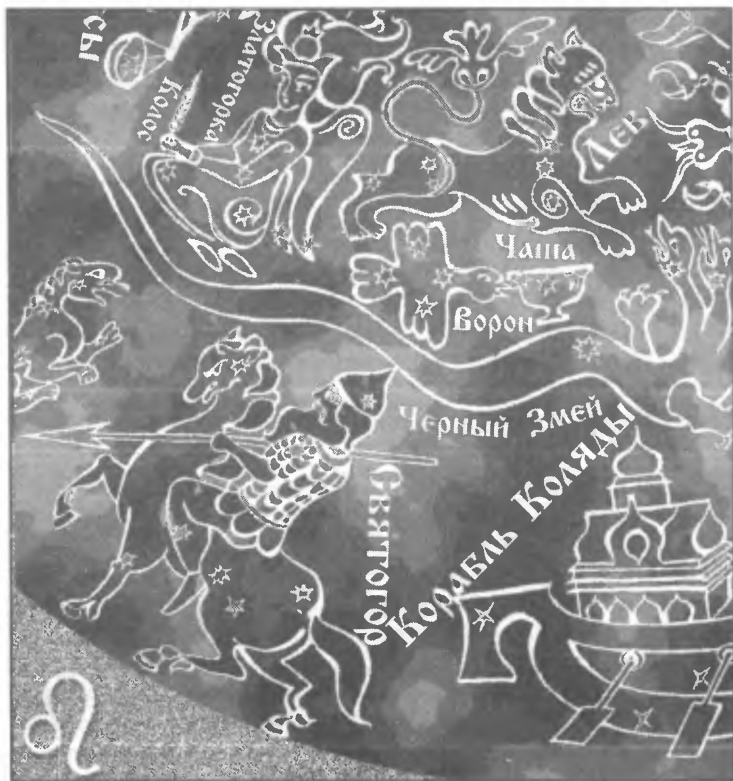 СЫ
Златогорка
Колос
Лев
Чаша
Ворон
Черный Змей
Святогор
Корабль Коляды